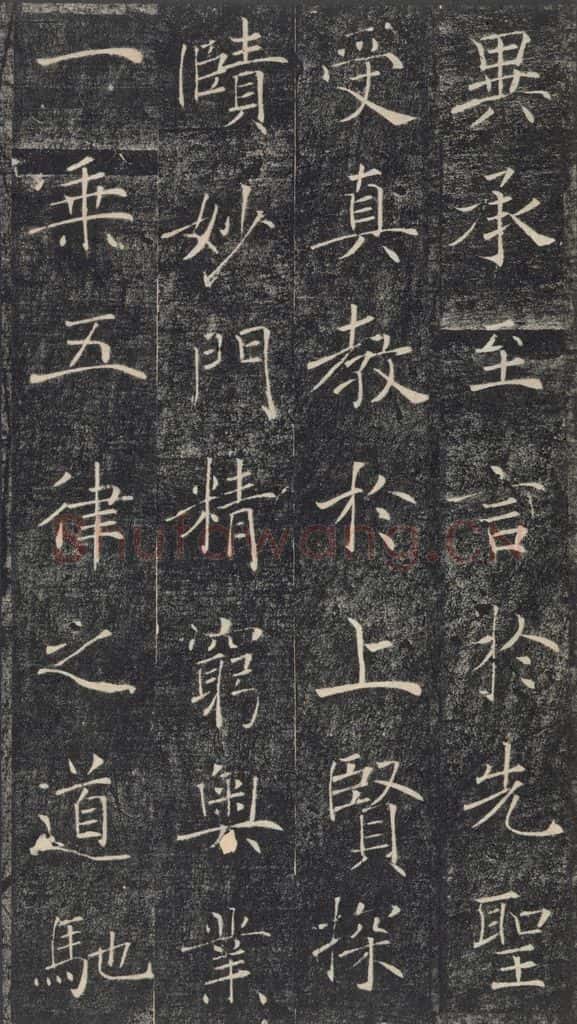 異承至言於先聖
受真教於上賢探
賾妙門精窮奧業
一乗五律之道馳
Shufawang.cn